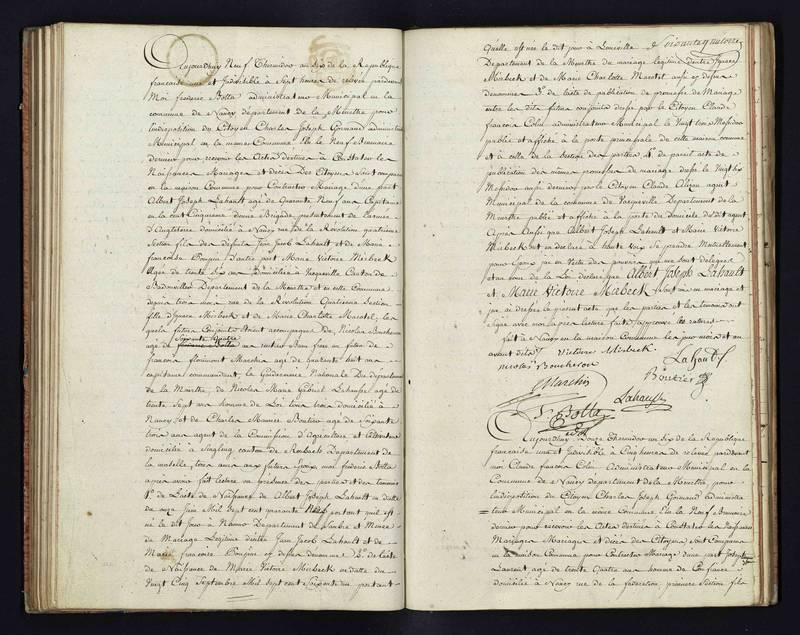 Aujourdhuy Neuf Thermidor an Six de la Republique
francaise une et Indivisible à Sept heures de relevée pardevant
Moi frederic Botta administrateur Municipal en la
commune de Nancy département de la Meurthe pour
lindisposition du Citoyen Charles Joseph Germand administrateur
Municipal en la meme Commune Elu le Neuf Brumaire
dernier pour recevoir les Actes destinés à Constater les
Naissances Mariages et décès Des Citoyens Sont comparus
en la maison Commune pour Contracter Mariage d'une part
Albert Joseph Lahault agé de Quarante Neuf ans Capitaine
en la cent Cinquieme demi Brigade presentement de l'armée
d'Angleterre domicilié à Nancy rue de la Revolution quatrieme
Section fils des defunts Jean Jacob Lahault et de Marie
francoise d'autre part Marie Victoire Misbeck
agée de trente Six ans domiciliée à Canton de
Département de la Meurthe et en cette Commune
depuis trois mois rue de la Révolution Quatrieme Section
fille d'Ignace Misbeck et de Marie Charlotte Marotel, les
quels futurs Conjoints etoient accompagnés de Nicolas Boucheron
agé de Soixante Quatre ans rentier
francois florimont Marchin agé de quarante huit ans
capitaine commandant la Gendarmerie Nationale Du département
de la Meurthe, de Nicolas Marie Gabriel Lahausse agé de
trente Sept ans homme de Loi tous trois domiciliés à
Nancy, et de Charles Maurice Boutier agé de Soixante
trois ans agent de la Commission d'Agriculture et
domicilié à canton de Département de
la Moselle, moi frederic Botta
après avoir fait lecture en présence des parties et des temoins
1°. de l'acte de Naissance de Albert Joseph Lahault en datte
du onze Juin Mil Sept cent quarante Neuf portant qu'il est
né le dit jour à Namur Département de Sambre et Meuse
du Mariage Legitime d'entre Jean Jacob Lahault et de
Marie francoise cy dessus denommés 2°. de l'acte
de Naissance de Marie Victoire Misbeck en datte du
Vingt Cinq Septembre Mil Sept cent Soixante un portant
Soixante quatorze
Qu'elle est née le dit jour à Lunéville
Département de la Meurthe du mariage legitime d'entre Ignace
Misbeck et de Marie Charlotte Marotel aussi cy dessus
denommés 3°. de l'acte de publication de promesse de Mariage
entre les dits futurs conjoints dressé par le Citoyen Claude
francois Colin administrateur Municipal le Vingt trois Messidor
publié et affiché à la porte principale de cette maison commune
et à celle de la section des parties 4°. de pareil acte de
publication des mêmes promesses de mariage dressé le Vingt Six
Messidor aussi dernier par le Citoyen Claude agent
Municipal de la commune de Département de la
Meurthe publié et affiché à la porte du domicile du dit agent
Après Aussi que Albert Joseph Lahault et Marie Victoire
Misbeck ont eu declaré à haute voix Se prendre Mutuellement
pour Epoux j'ai en vertu des pouvoirs qui me sont delegués
et au nom de la Loi déclaré que Albert Joseph Lahault
et Marie Victoire Misbeck Sont unis en mariage et
j'ai dressé le present acte que les parties et les temoins ont
Signé avec moi après lecture faite
fait à Nancy en la maison Commune les jour mois et an
avant dits. Victoire Misbeck
nicolas Boucheron
Lahault
Boutier
Marchin
Lahausse
f. Botta
Aujourdhuy Douze Thermidor an Six de la Republique
francaise une et Indivisible à Cinq heures de relevée pardevant
moi Claude francois Colin Administrateur Municipal en la
Commune de Nancy departement de la Meurthe, pour
l'indisposition du Citoyen Charles Joseph Germand administra
teur Municipal en la même Commune Elu le Neuf Brumaire
dernier pour recevoir les Actes destinés à Constater les Naissances
Mariages et décès des Citoyens, sont Comparus
en la maison Commune pour Contracter Mariage d'une part Joseph
Laurent agé de trente Quatre ans homme de Confiance
domicilié à Nancy rue de la federation premiere Section fils